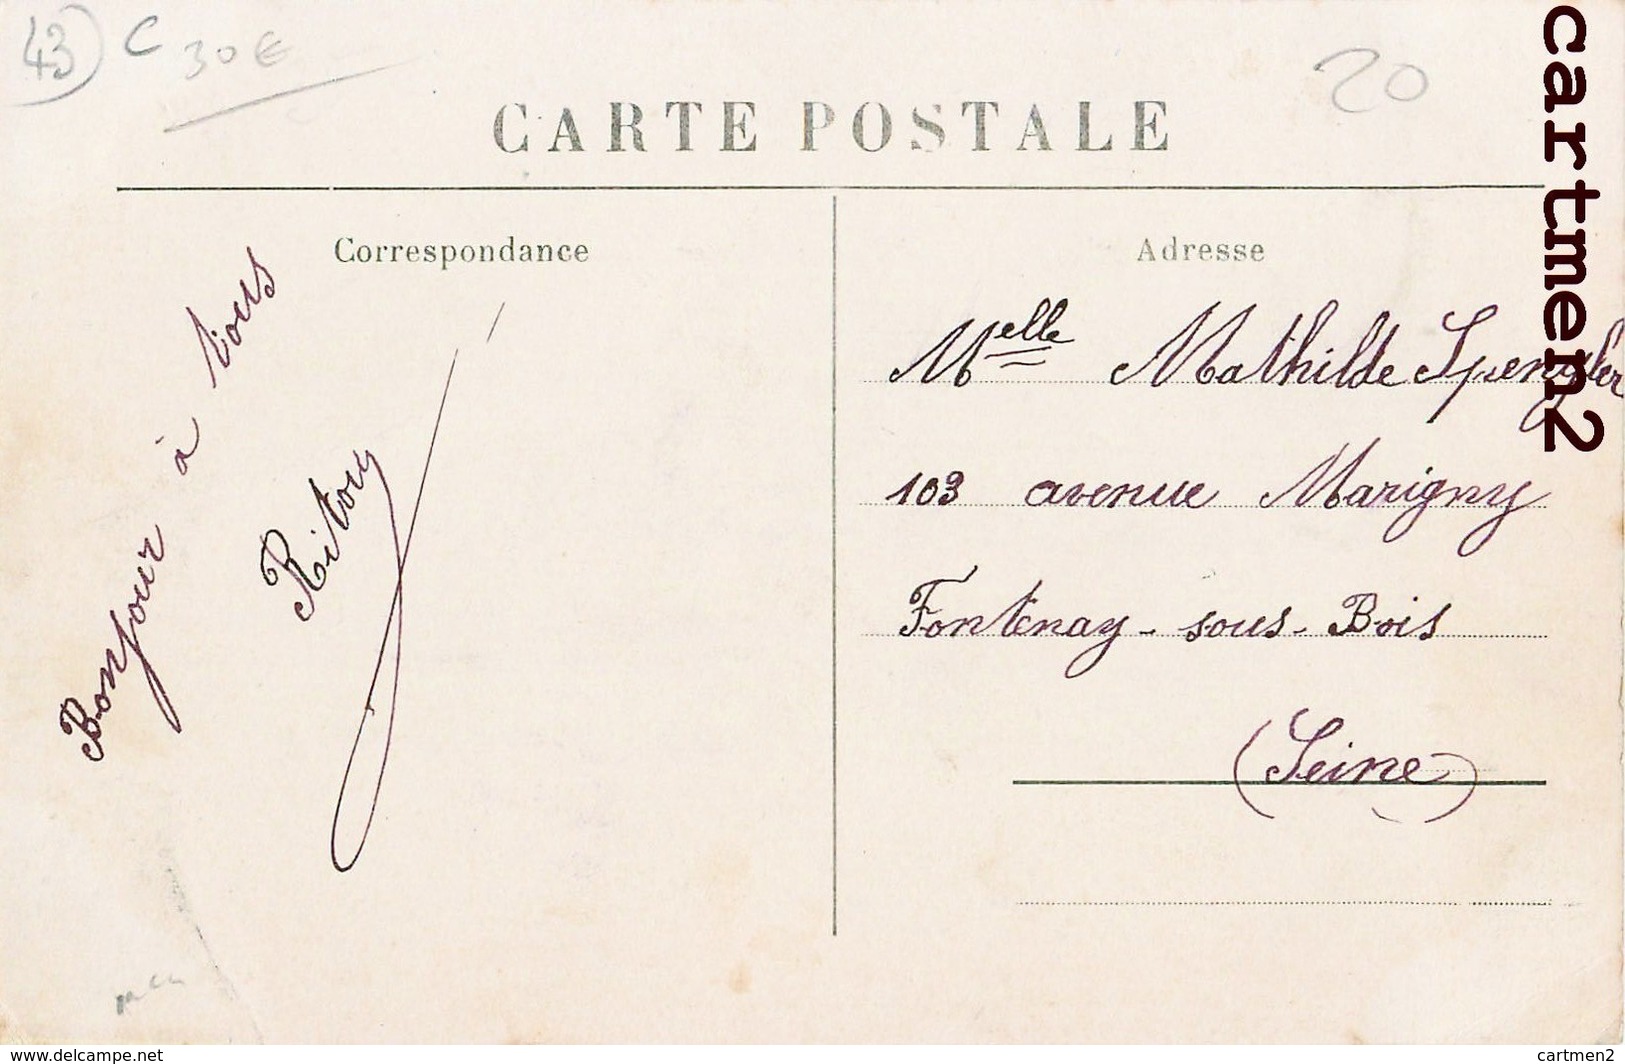 43) C 30€
20
CARTE POSTALE
Correspondance
Bonjour à tous
Riton
Adresse
Melle Mathilde Spengler
103 avenue Marigny
Fontenay-sous-Bois
(Seine)
cartmen2
www.delcampe.net
cartmen2